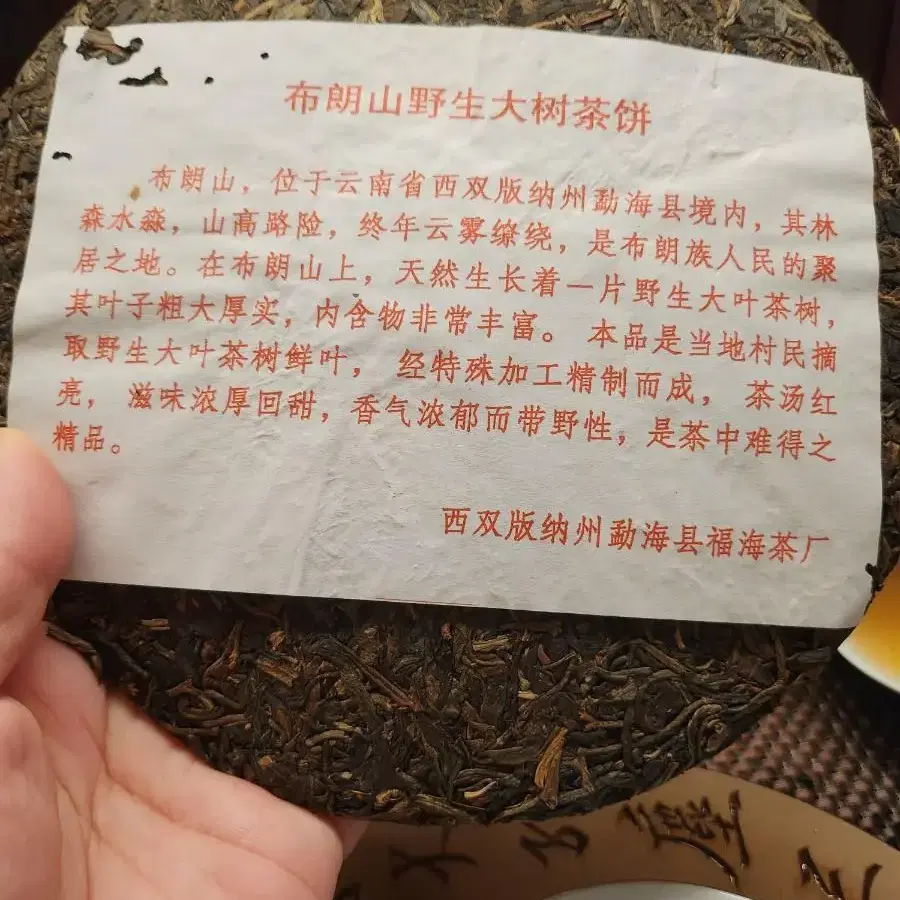 布朗山野生大树茶饼
布朗山，位于云南省西双版纳州勐海县境内，其林
森水淼，山高路险，终年云雾缭绕，是布朗族人民的聚
居之地。在布朗山上，天然生长着一片野生大叶茶树，
其叶子粗大厚实，内含物非常丰富。 本品是当地村民摘
取野生大叶茶树鲜叶， 经特殊加工精制而成， 茶汤红
亮， 滋味浓厚回甜，香气浓郁而带野性，是茶中难得之
精品。
西双版纳州勐海县福海茶厂